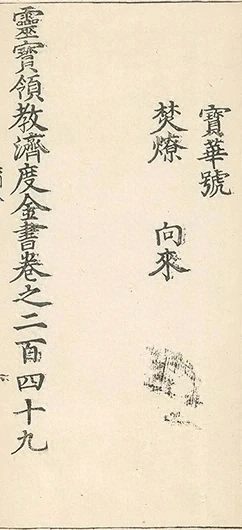 寶華號
焚燎　向來
靈寶領教濟度金書卷之二百四十九